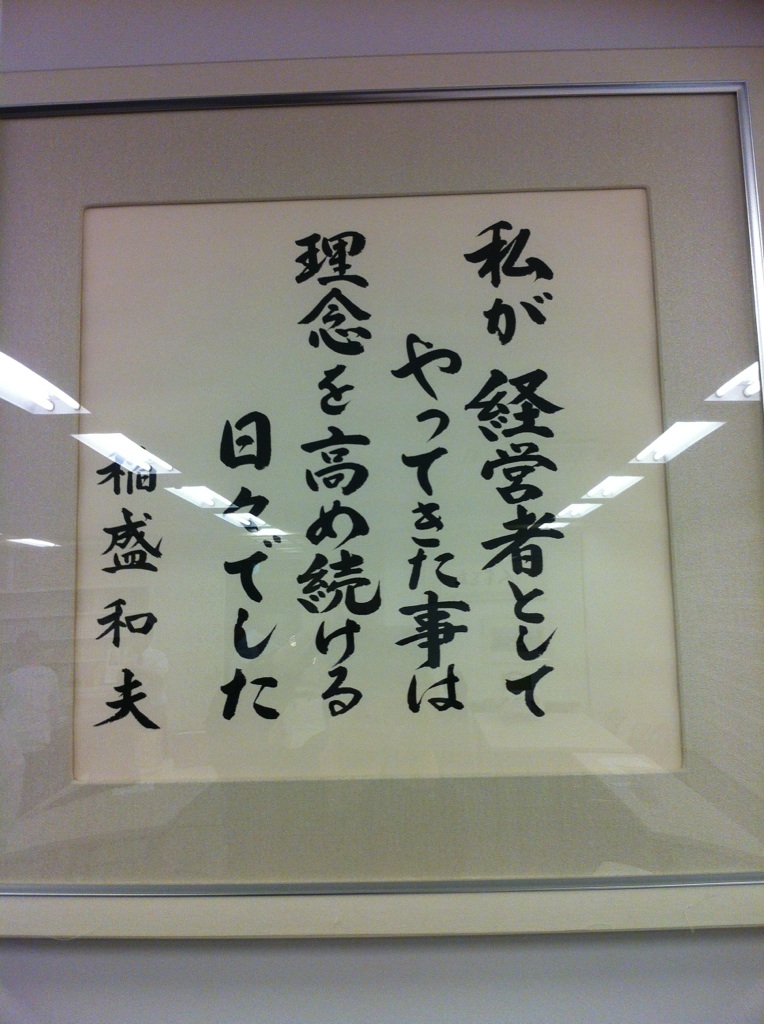 私が 経営者として
やってきた事は
理念を高め続ける
日々でした
稲盛 和夫